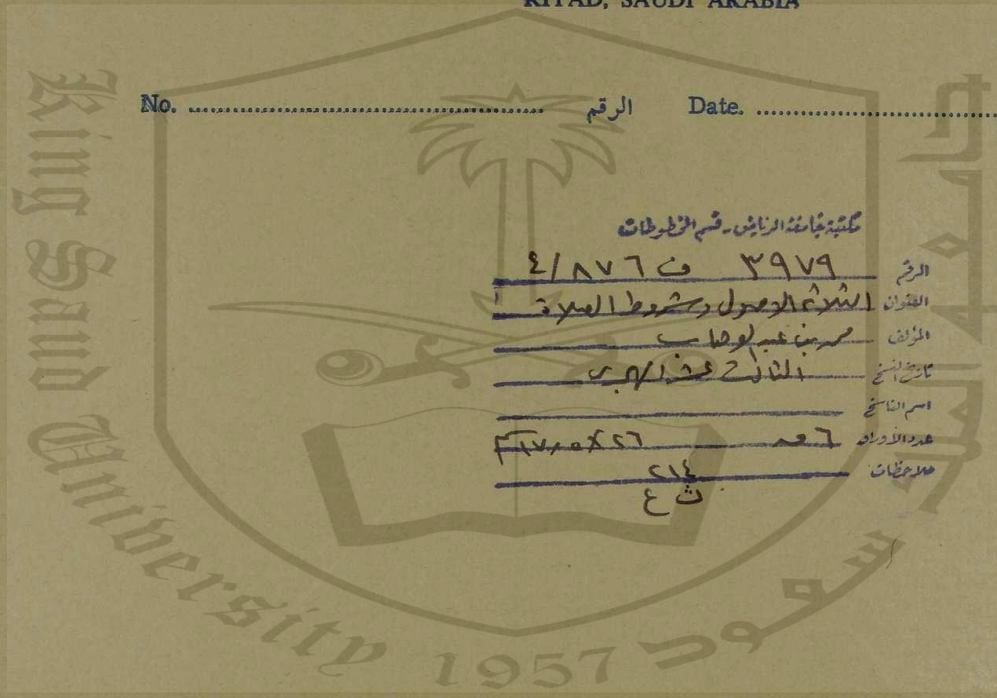 RIYAD, SAUDI ARABIA
No. ........................ الرقم Date. ........................
مكتبة جامعة الرياض - قسم المخطوطات
الرقم ٣٩٧٩ ف ٨٧٦/٤
العنوان الثلاثة الاصول وشروط الصلاة
المؤلف محمد بن عبد الوهاب
تاريخ النسخ الثالث عشر الهجري
اسم الناسخ
عدد الأوراق ٦ ٢٦×١٧٫٥
ملاحظات ٢١٤
ث ع
King Saud University
1957
جامعة الملك سعود